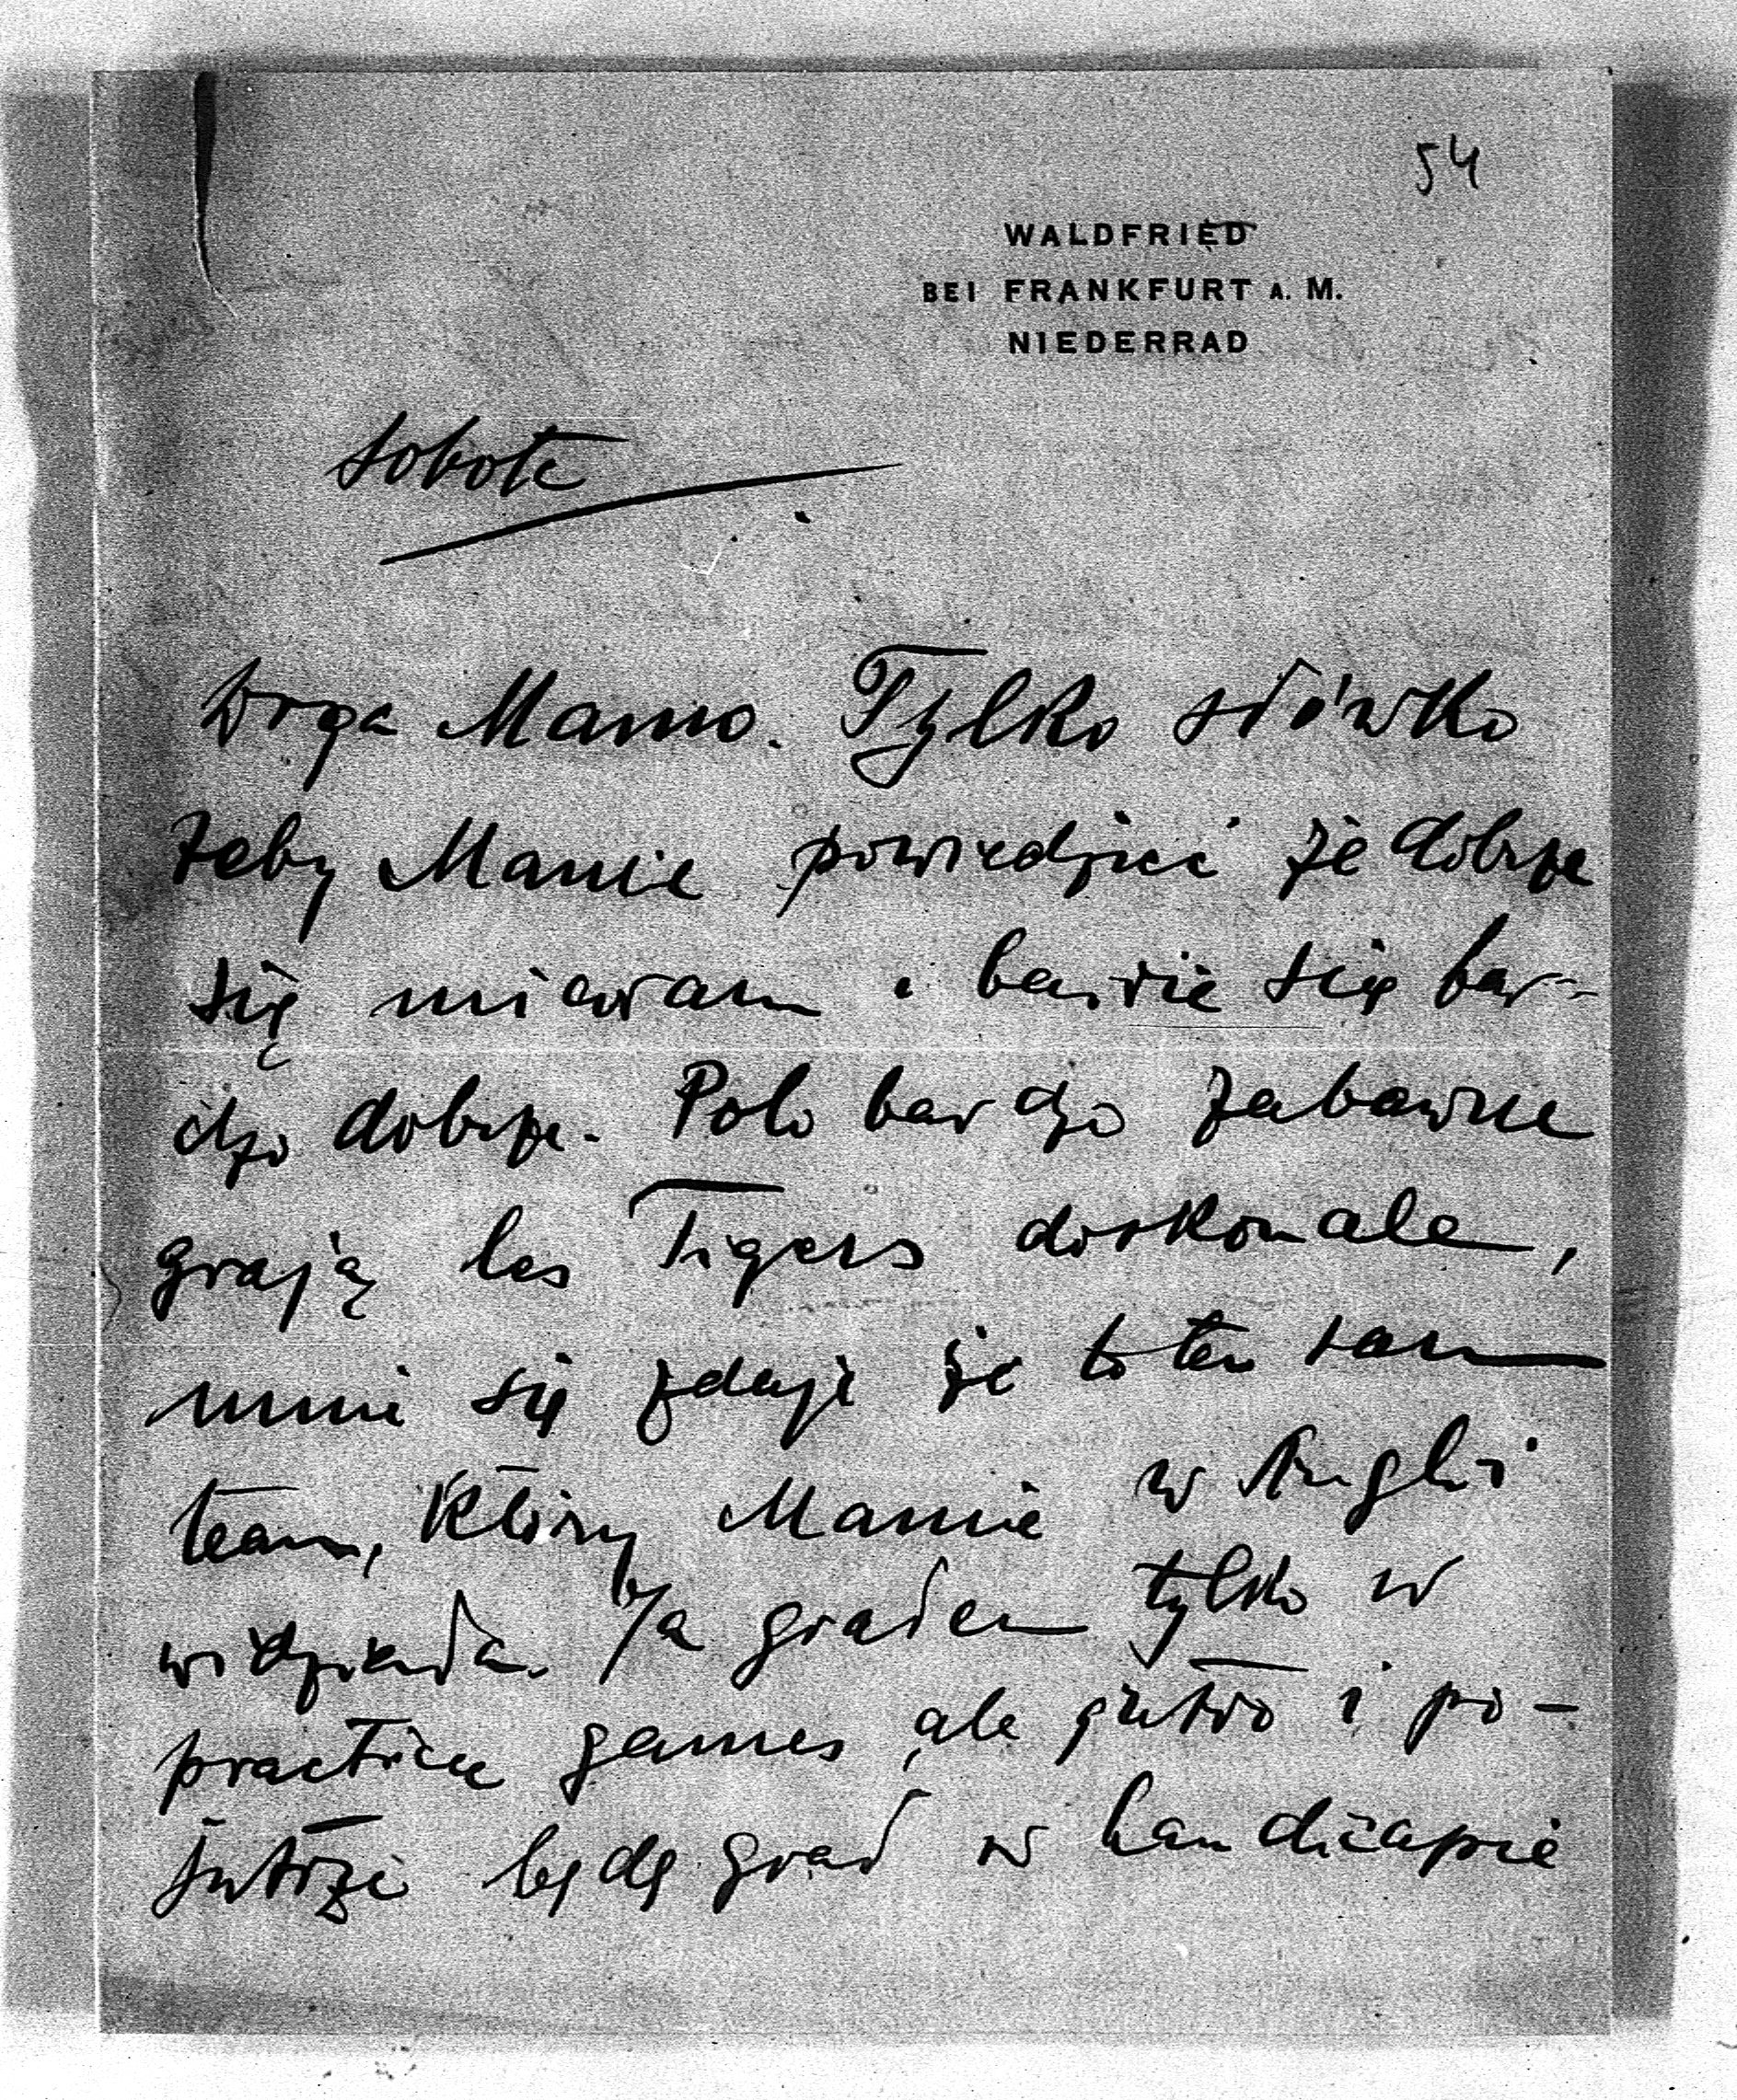 54
WALDFRIED
BEI FRANKFURT A. M.
NIEDERRAD
sobota
Droga Mamo. Tylko słówko
żeby Mamie powiedzieć że dobrze
się miewam i bawię się bar-
dzo dobrze. Polo bardzo zabawne
grają les Tigers doskonale,
mnie się zdaje że to ten sam
team, który Mamie w Anglii
widziała. Ja grałem tylko w
practice games ale jutro i po-
jutrze będę grał w handicapie